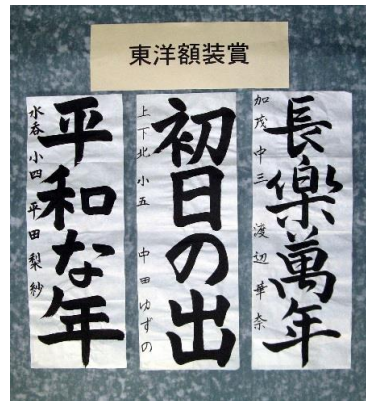 東洋額装賞
長樂萬年
加茂 中三 渡辺 華奈
初日の出
上下北 小五 中田 ゆずの
平和な年
水呑 小四 平田 梨紗